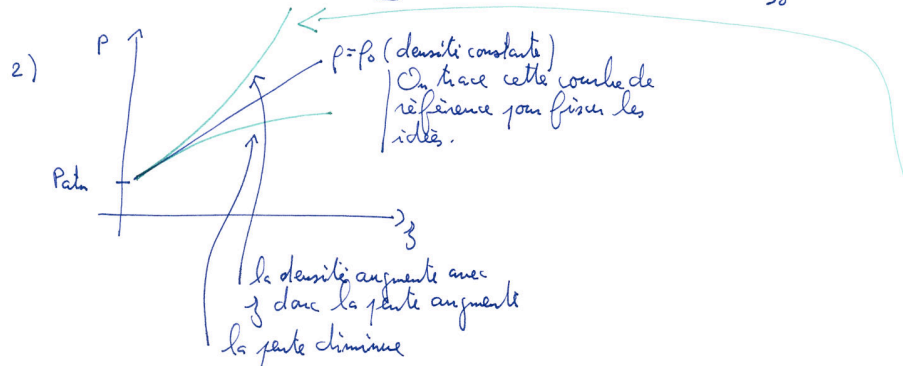 2)
P
ρ=ρ₀ (densité constante)
On trace cette courbe de
référence pour fixer les
idées.
Patm
z
la densité augmente avec
z donc la pente augmente
la pente diminue